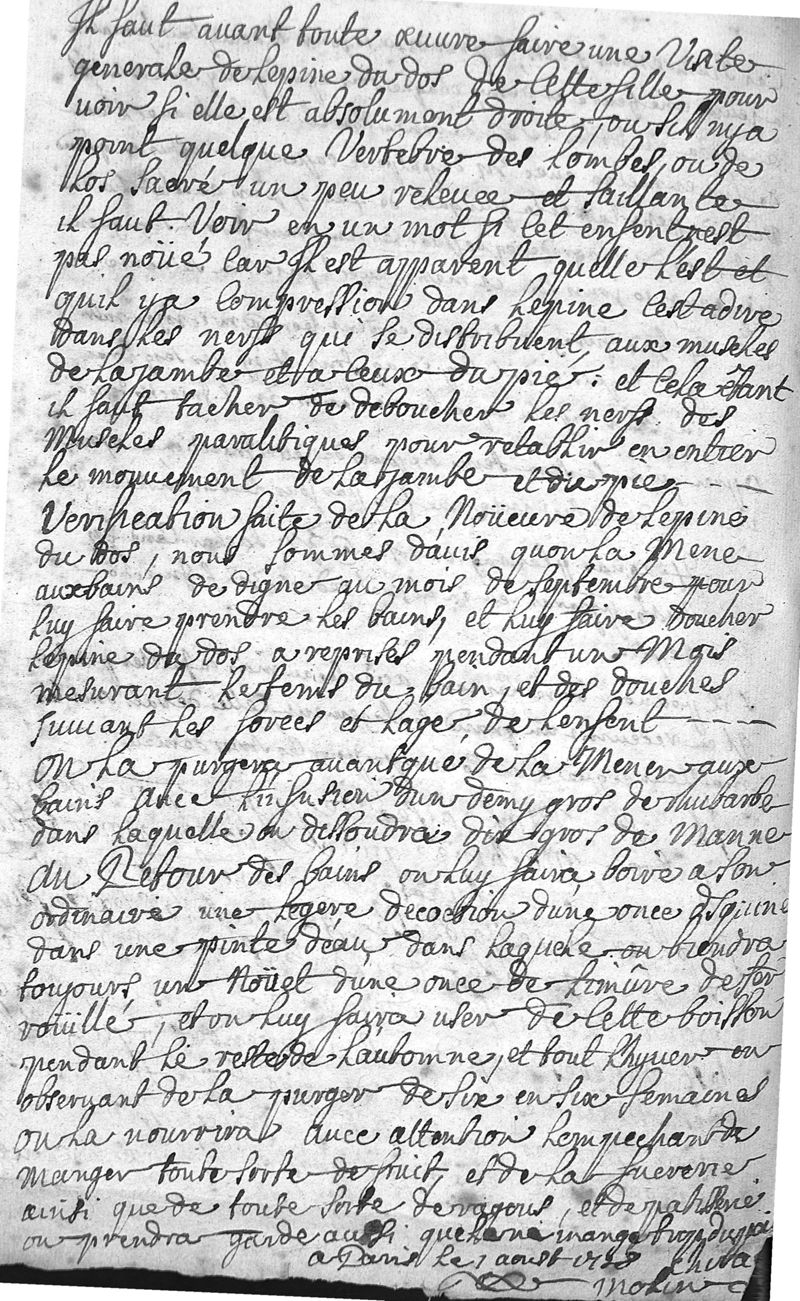 Il faut avant toute œuvre faire une Visite
generale de lepine du dos de cette fille pour
voir si elle est absolument droite, ou sil nya
point quelque Vertebre des lombes, ou de
los sacré un peu relevee et saillante
il faut Voir en un mot si cet enfent nest
pas noüé. Car Il est apparent quelle lest et
quil ya Compression dans lepine cest adire
dans les nerfs qui se distribuent, aux muscles
de la jambe et a ceux du pié: et cela êtant
il faut tacher de deboucher les nerfs des
Muscles paralitiques pour retablir en entier
le mouvement de la jambe et du pie ----
Verification faite de la Noüeure de lepine
du dos, nous sommes davis quon la Mene
aux bains de digne au mois de septembre pour
luy faire prendre les bains, et luy faire doucher
lepine du dos a reprises pendant un Mois
mesurant le tems du bain, et des douches
suivant les forces et lage de lenfent ----
On la purgera avant que de la Mener aux
bains avec linfusion dun demy gros de rubarbe
dans laquelle on dissoudra dix gros de Manne
Au Retour des bains on luy faira boire a son
ordinaire une legere decoction dune once dsquine
dans une pinte deau, dans laquele on tiendra
toujours un Noüet dune once de limûre de fer
roüillé, et on luy faira user de cette boisson
pendant le reste de lautomne, et tout lhyver en
observant de la purger de six en six semaines
On la nourrira avec attention lempechant de
Manger toute sorte de fruit, et de la sucrerie
ainsi que de toute sorte de ragous, et de patisserie
on prendra garde aussi quelle ne mange trop du
a Paris le 7 aoust 1728
Molin